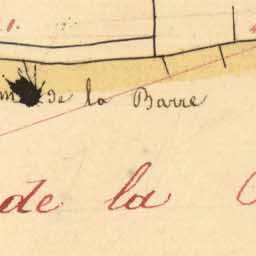 de la Barre
de la